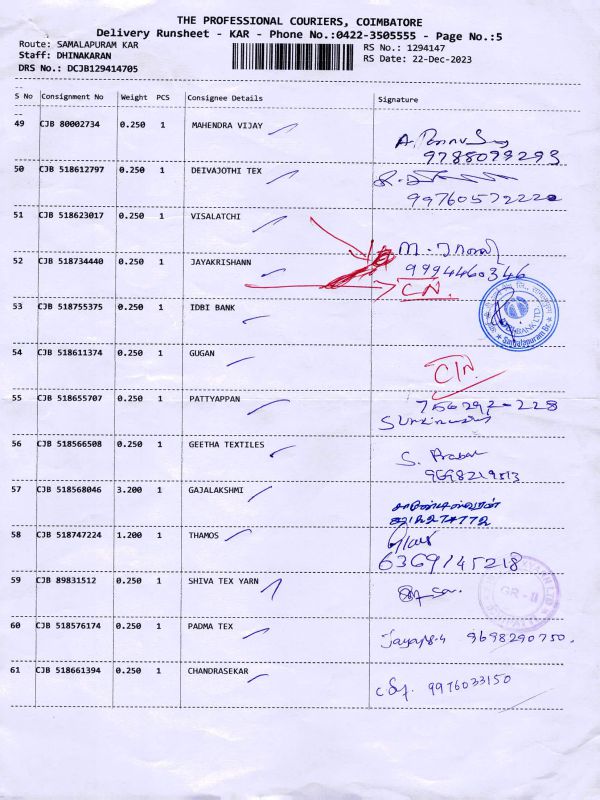 THE PROFESSIONAL COURIERS, COIMBATORE
Delivery Runsheet - KAR - Phone No.:0422-3505555 - Page No.:5
Route: SAMALAPURAM KAR
RS No.: 1294147
Staff: DHINAKARAN
RS Date: 22-Dec-2023
DRS No.: DCJB129414705
S No Consignment No Weight PCS Consignee Details Signature
49 CJB 80002734 0.250 1 MAHENDRA VIJAY
9788079293
50 CJB 518612797 0.250 1 DEIVAJOTHI TEX
51 CJB 518623017 0.250 1 VISALATCHI
52 CJB 518734440 0.250 1 JAYAKRISHANN
9994460346
CN.
53 CJB 518755375 0.250 1 IDBI BANK
54 CJB 518611374 0.250 1 GUGAN
CN.
55 CJB 518655707 0.250 1 PATTYAPPAN
756292-228
56 CJB 518566508 0.250 1 GEETHA TEXTILES
57 CJB 518568046 3.200 1 GAJALAKSHMI
58 CJB 518747224 1.200 1 THAMOS
6369145218
59 CJB 89831512 0.250 1 SHIVA TEX YARN
GR-II
60 CJB 518576174 0.250 1 PADMA TEX
9698290750.
61 CJB 518661394 0.250 1 CHANDRASEKAR
9976033150